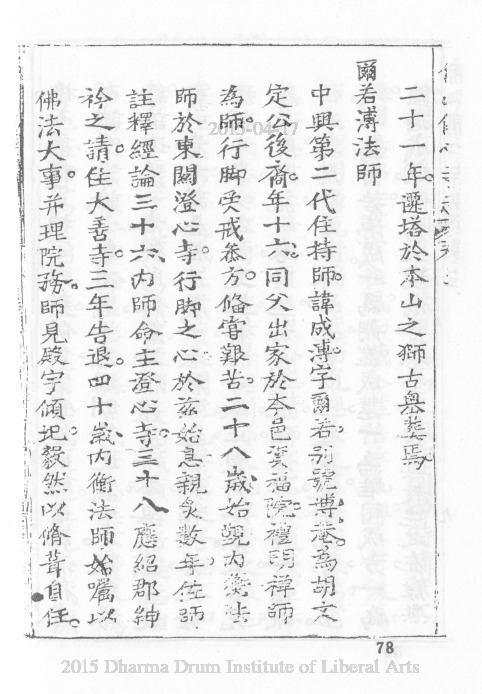 二十一年。遷塔於本山之獅古奧塟焉。
爾若溥法師
中興第二代住持師。諱成溥。字爾若。別號博菴。為胡文
定公後裔。年十六。同父出家於本邑漢福院。禮明禪師
為師。行脚受戒叅方。俻甞艱苦。二十八歲始覲內衡法
師於東關澄心寺。行脚之心於兹始息。親炙數年。佐師
註釋經論三十六。內師命主澄心寺。三十八應紹郡紳
衿之請。住大善寺。三年告退。四十歲內衡法師始囑以
佛法大事。并理院務。師見殿宇傾圮。毅然以脩葺自任。
2015-04-17
78
2015 Dharma Drum Institute of Liberal Arts